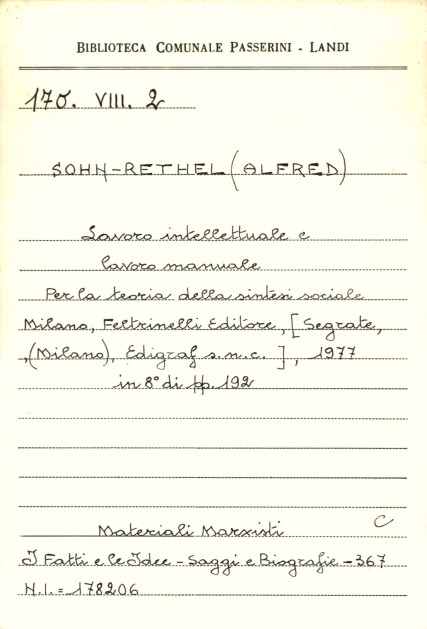 BIBLIOTECA COMUNALE PASSERINI - LANDI
170. VIII. 2
SOHN-RETHEL (ALFRED)
Lavoro intellettuale e
lavoro manuale
Per la teoria della sintesi sociale
Milano, Feltrinelli Editore, [Segrate,
,(Milano), Edigraf s.n.c. ], 1977
in 8° di pp. 192
C
Materiali Marxisti
I Fatti e le Idee - Saggi e Biografie - 367
N.I. = 178206